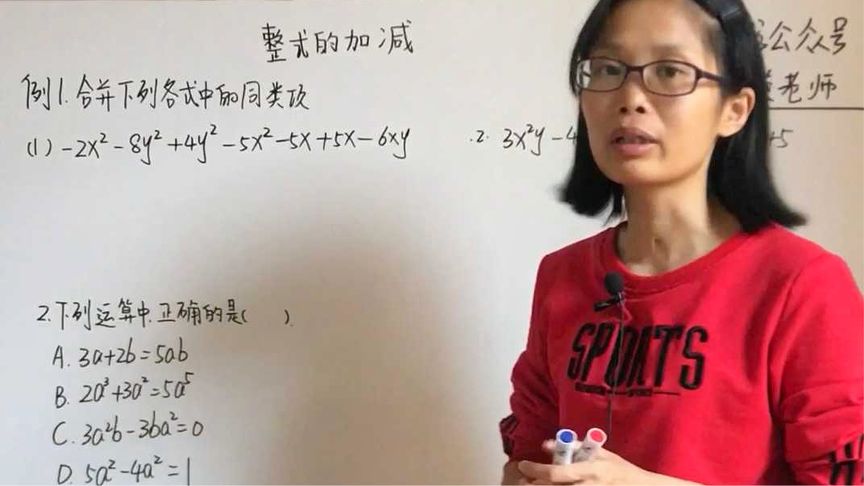 整式的加减
公众号
老师
例1.合并下列各式中的同类项
(1) -2x²-8y²+4y²-5x²-5x+5x-6xy
.2. 3x²y-4 +5
2.下列运算中,正确的是( ).
A. 3a+2b=5ab
B. 2a³+3a²=5a⁵
C. 3a²b-3ba²=0
D. 5a²-4a²=1
SPORTS